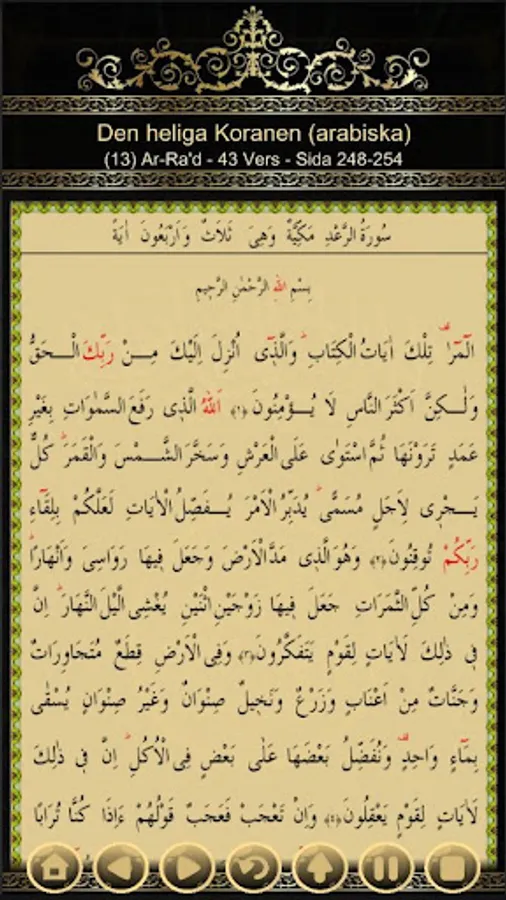 Den heliga Koranen (arabiska)
(13) Ar-Ra'd - 43 Vers - Sida 248-254
سُورَةُ الرَّعْدِ مَكِّيَّةٌ وَهِىَ ثَلَاثٌ وَاَرْبَعُونَ اٰيَةً
بِسْمِ اللهِ الرَّحْمٰنِ الرَّحِيمِ
الٓمٓرٰ ۠ تِلْكَ اٰيَاتُ الْكِتَابِ ۜ وَالَّذٖٓى اُنْزِلَ اِلَيْكَ مِنْ رَبِّكَ الْحَقُّ
وَلٰكِنَّ اَكْثَرَ النَّاسِ لَا يُؤْمِنُونَ ﴿١﴾ اَللهُ الَّذٖى رَفَعَ السَّمٰوَاتِ بِغَيْرِ
عَمَدٍ تَرَوْنَهَا ثُمَّ اسْتَوٰى عَلَى الْعَرْشِ وَسَخَّرَ الشَّمْسَ وَالْقَمَرَ ۜ كُلٌّ
يَجْرٖى لِاَجَلٍ مُسَمًّى ۜ يُدَبِّرُ الْاَمْرَ يُفَصِّلُ الْاٰيَاتِ لَعَلَّكُمْ بِلِقَٓاءِ
رَبِّكُمْ تُوقِنُونَ ﴿٢﴾ وَهُوَ الَّذٖى مَدَّ الْاَرْضَ وَجَعَلَ فٖيهَا رَوَاسِىَ وَاَنْهَارًا ۜ
وَمِنْ كُلِّ الثَّمَرَاتِ جَعَلَ فٖيهَا زَوْجَيْنِ اثْنَيْنِ يُغْشِى الَّيْلَ النَّهَارَ ۜ اِنَّ
فٖى ذٰلِكَ لَاٰيَاتٍ لِقَوْمٍ يَتَفَكَّرُونَ ﴿٣﴾ وَفِى الْاَرْضِ قِطَعٌ مُتَجَاوِرَاتٌ
وَجَنَّاتٌ مِنْ اَعْنَابٍ وَزَرْعٌ وَنَخٖيلٌ صِنْوَانٌ وَغَيْرُ صِنْوَانٍ يُسْقٰى
بِمَٓاءٍ وَاحِدٍ ۠ وَنُفَضِّلُ بَعْضَهَا عَلٰى بَعْضٍ فِى الْاُكُلِ ۜ اِنَّ فٖى ذٰلِكَ
لَاٰيَاتٍ لِقَوْمٍ يَعْقِلُونَ ﴿٤﴾ وَاِنْ تَعْجَبْ فَعَجَبٌ قَوْلُهُمْ ءَاِذَا كُنَّا تُرَابًا